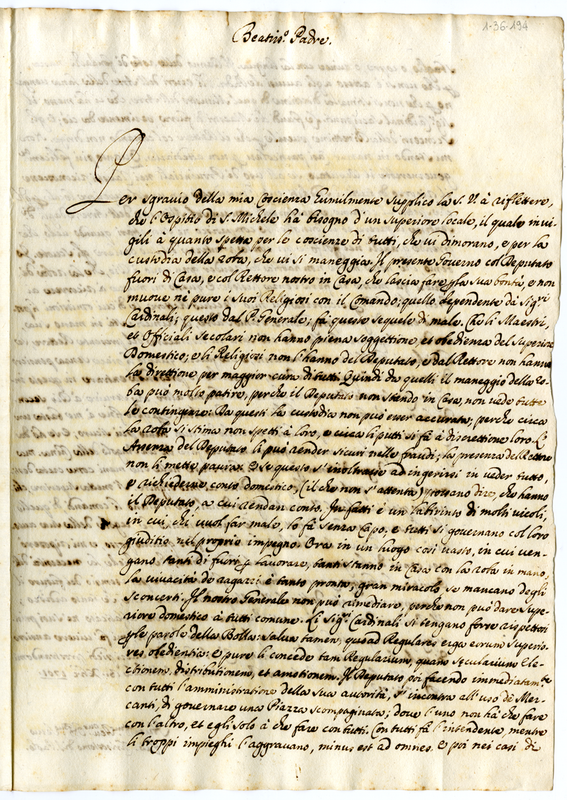 1-36-194
Beatiss.º Padre.
Per sgravio della mia Coscienza humilmente supplico la S. V. à riflettere,
che l'Ospitio di S. Michele hà bisogno d'un Superiore locale, il quale invi-
gili à quanto spetta per le coscienze di tutti, che vi dimorano, e per la
custodia della roba, che vi si maneggia. Il presente Governo col Deputato
fuori di Casa, e col Rettore nostro in Casa, che lascia fare p la sua bontà, e non
muove ne pure i suoi Religiosi con il Comando: quello dependente da Sigri
Cardinali; questo dal P. Generale; fà queste sequele di male. Che li Maestri,
et Officiali Secolari non hanno piena soggettione, et obedienza del Superiore
Domestico, e li Religiosi non l'hanno del Deputato, e dal Rettore non hanno
la direttione per maggior cura di tutti. Quindi da quelli il maneggio della ro-
ba può molto patire, perche il Deputato non stando in Casa, non vede tutte
le contingenze: Da questi la custodia non può esser accurata; perche circa
la roba si stima non spetti à loro, e circa li putti si fà à discrettione loro. L'
Assenza del Deputato li può render sicuri nelle fraudi; la presenza del Rettore
non li mette paura. E se questo s'inoltrasse ad ingerirsi in veder tutto,
e richiederne conto domestico, (il che non s'attenta) potriano dire, che hanno
il Deputato, a cui rendan conto. In fatti è un labirinto di molti vicoli,
in cui, chi vuol far male, lo fà senza Capo, e tutti si governano col loro
giuditio nel proprio impegno. Ora in un luogo così vasto, in cui ven-
gano tanti di fuori p lavorare, tanti stanno in Casa con la roba in mano,
la vivacità de ragazzi è tanto pronta; gran miracolo se mancano degli
sconcerti. Il nostro Generale non può rimediare, perche non può dare Supe-
riore domestico à tutti comune. Li Sigri Cardinali si tengano forse rispettosi
p le parole della Bolla: Salva tamen, quoad Regulares erga eorum Superio-
res, obedientia: e pure li concede tam Regularium, quam Secularium Ele-
ctionem, distributionem, et amotionem. Il Deputato poi facendo immediatamte
con tutti l'amministratione della sua autorità, s'incontra all'uso de Mer-
canti, di governare una Piazza scompaginata; dove l'uno non hà che fare
con l'altro, et egli solo à che fare con tutti. Con tutti fà l'intendente, mentre
li troppi impieghi l'aggravano, minus est ad omnes. e poi nei casi di